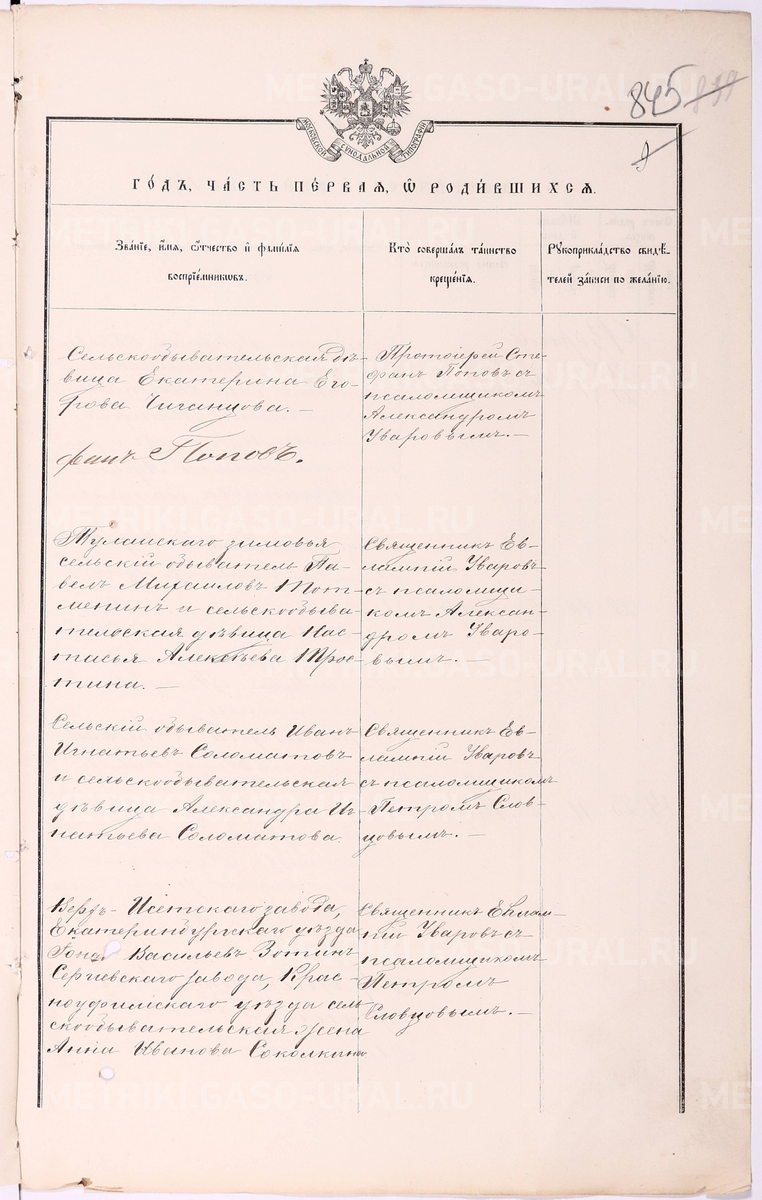 845
МОСКОВСКОЙ СѴНОДАЛЬНОЙ ТИПОГРАФІИ
ГО́ДЪ, ЧА́СТЬ ПЕ́РВАЯ, Ѿ РОДИ́ВШИХСЯ.
Зва́нїе, и҆́мя, ѻ҆́тчество и҆ фами́лїя
воспрїе́мникѡвъ.
Кто̀ соверша́лъ та́инство
креще́нїя.
Рꙋкоприкла́дство свидѣ́-
телей за́писи по жела́нїю.
Сельскообывательская дѣ-
вица Екатерина Его-
рова Чиганцова. —
фанъ Поповъ.
Протоіерей Сте-
фанъ Поповъ съ
псаломщикомъ
Александромъ
Уваровымъ. —
Тулашскаго зимовья
сельскій обыватель Па-
велъ Михаиловъ Тот-
менинъ и сельскообыва-
тельская дѣвица Нас-
тасья Алексѣева Трос-
тина. —
Священникъ Ев-
лампій Уваровъ
съ псаломщи-
комъ Алексан-
дромъ Уваро-
вымъ. —
Сельскій обыватель Иванъ
Игнатьевъ Соломатовъ
и сельскообывательская
дѣвица Александра Иг-
натьева Соломатова.
Священникъ Ев-
лампій Уваровъ
съ псаломщикомъ
Петромъ Слов-
цовымъ. —
Верхъ-Исетскаго завода,
Екатеринбургскаго уѣзда
Васильевъ Зотинъ
Сергіевскаго завода, Крас-
ноуфимскаго уѣзда сель-
скообывательская жена
Анна Иванова Соколкина
Священникъ Евлам-
пій Уваровъ съ
псаломщикомъ
Петромъ
Словцовымъ. —
METRIKI.GASO-URAL.RU